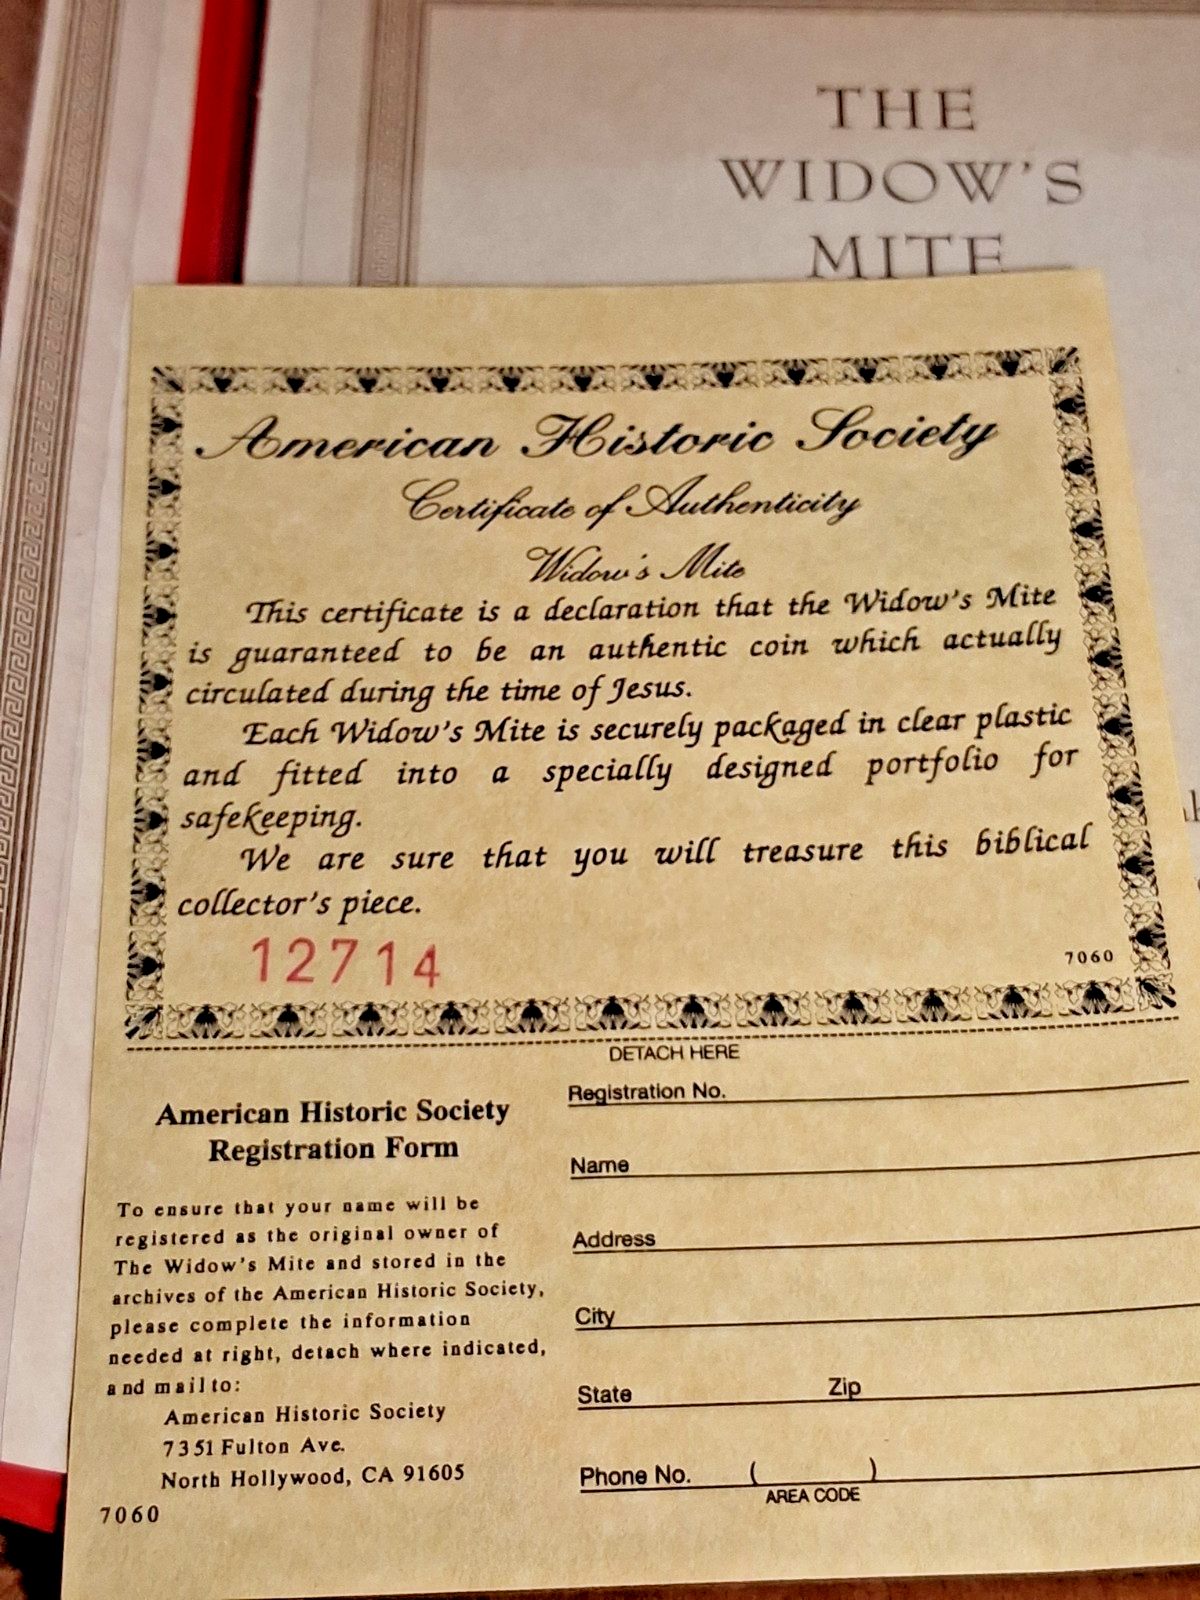 THE
WIDOW'S
MITE
American Historic Society
Certificate of Authenticity
Widow's Mite
This certificate is a declaration that the Widow's Mite
is guaranteed to be an authentic coin which actually
circulated during the time of Jesus.
Each Widow's Mite is securely packaged in clear plastic
and fitted into a specially designed portfolio for
safekeeping.
We are sure that you will treasure this biblical
collector's piece.
12714
7060
DETACH HERE
American Historic Society
Registration Form
To ensure that your name will be
registered as the original owner of
The Widow's Mite and stored in the
archives of the American Historic Society,
please complete the information
needed at right, detach where indicated,
and mail to:
American Historic Society
7351 Fulton Ave.
North Hollywood, CA 91605
7060
Registration No.
Name
Address
City
State Zip
Phone No. ( )
AREA CODE